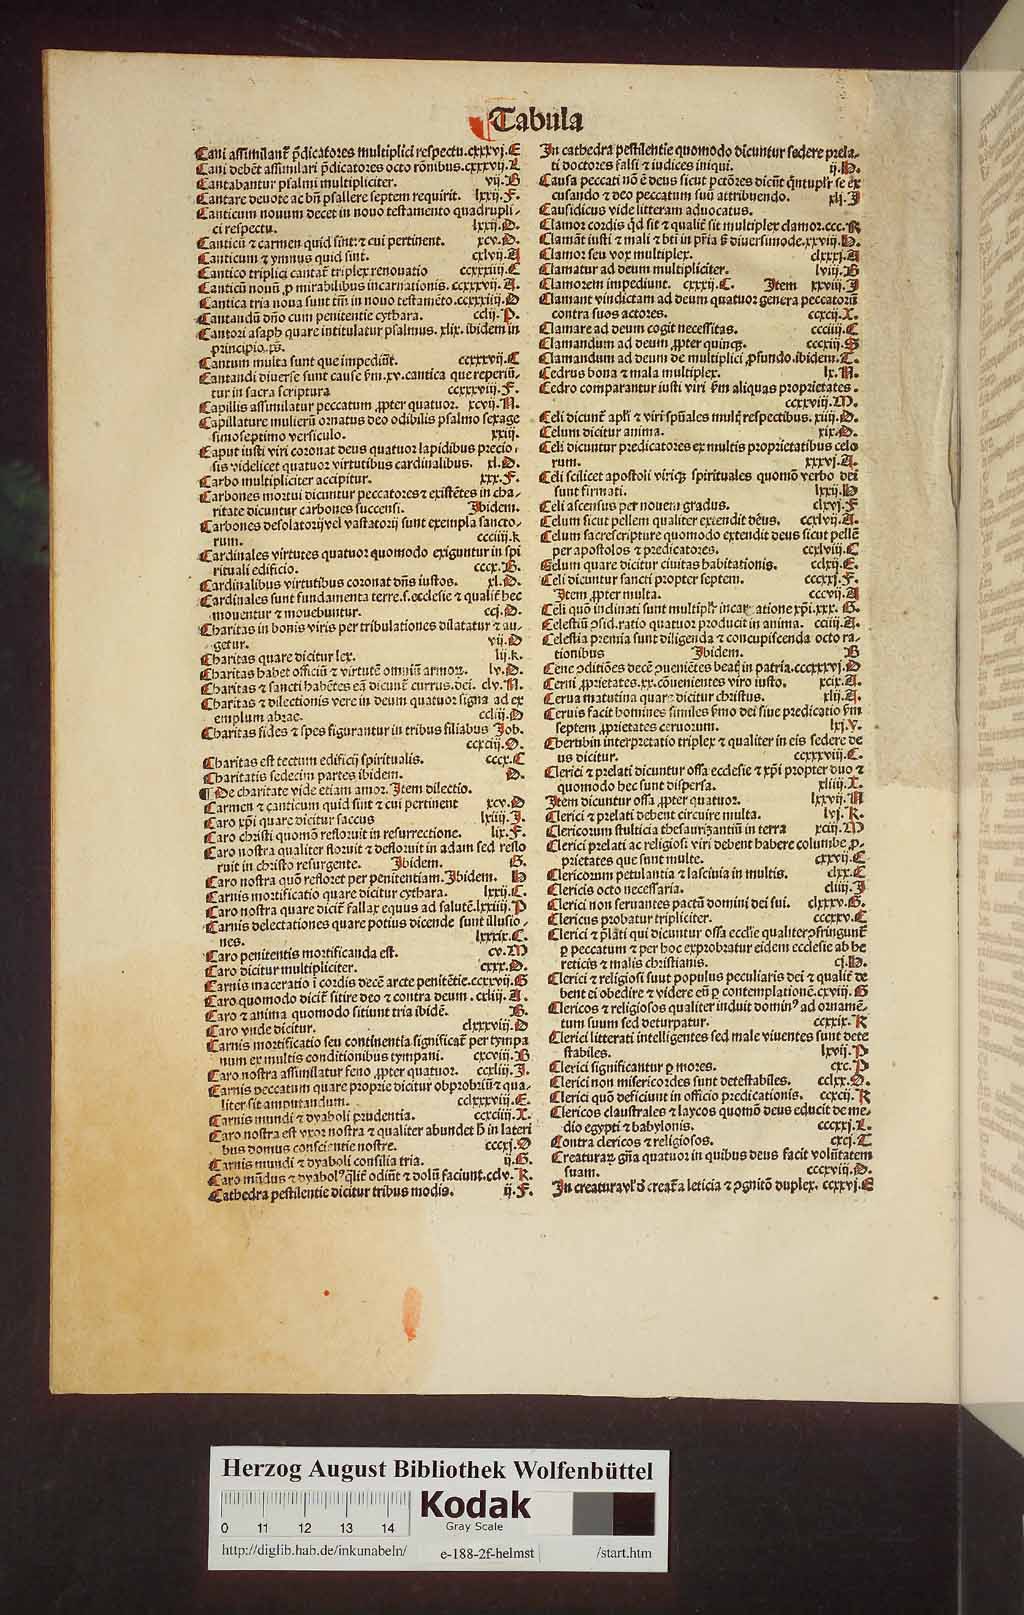 Tabula
Cani assimilant᷑ p̄dicatores multiplici respectu. cxxxvj. E
Cani debēt assimilari p̄dicatores octo rōnibus. cxxxvij. L
Cantabantur psalmi multipliciter. vij. B
Cantare deuote ac bn̄ psallere septem requirit. lxxij. F.
Canticum nouum decet in nouo testamento quadrupli-
ci respectu. lxxij. D.
Canticū ⁊ carmen quid sint: ⁊ cui pertinent. xcv. D.
Canticum ⁊ ymnus quid sint. cxlvij. A
Cantico triplici cantat᷑ triplex renouatio ccxxxiiij. C
Canticū nouū ꝓ mirabilibus incarnationis. ccxxxvij. A.
Cantica tria noua sunt tm̄ in nouo testamēto. ccxxxiiij. D
Cantandū dn̄o cum penitentie cythara. cclij. P.
Cantori asaph quare intitulatur psalmus. xlix. ibidem in
principio. ps̄.
Cantum multa sunt que impediūt. ccxxxvij. C
Cantandi diuerse sunt cause ẜm. xv. cantica que reperiū-
tur in sacra scriptura ccxxxviij. F.
Capillis assimilatur peccatum ꝓpter quatuor. xcvij. N.
Capillature mulierū ornatus deo odibilis psalmo sexage
simoseptimo versiculo. xxiij.
Caput iusti viri coronat deus quatuor lapidibus precio-
sis videlicet quatuor virtutibus cardinalibus. xl. D.
Carbo multipliciter accipitur. xxx. F.
Carbones mortui dicuntur peccatores ⁊ existētes in cha-
ritate dicuntur carbones succensi. Ibidem.
Carbones desolatorij vel vastatorij sunt exempla sancto-
rum. ccciiij. k
Cardinales virtutes quatuor quomodo exiguntur in spi
rituali edificio. cccx. B.
Cardinalibus virtutibus coronat dn̄s iustos. xl. D.
Cardinales sunt fundamenta terre. s. ecclesie ⁊ qualit᷑ hec
mouentur ⁊ mouebuntur. ccj. D.
Charitas in bonis viris per tribulationes dilatatur ⁊ au-
getur. vij. D
Charitas quare dicitur lex. lij. k.
Charitas habet officiū ⁊ virtutē omniū armoꝝ. lv. D.
Charitas ⁊ sancti habētes eā dicunt᷑ currus. dei. clv. N.
Charitas ⁊ dilectionis vere in deum quatuor signa ad ex
emplum abrae. ccliij. D
Charitas fides ⁊ spes figurantur in tribus filiabus Job.
ccxciij. O.
Charitas est tectum edificij spiritualis. cccx. C
Charitatis sedecim partes ibidem. D.
¶ De charitate vide etiam amor. Item dilectio.
Carmen ⁊ canticum quid sint ⁊ cui pertinent xcv. D
Caro xp̄i quare dicitur saccus lxiiij. I.
Caro christi quomō refloruit in resurrectione. lix. F.
Caro nostra qualiter floruit ⁊ defloruit in adam sed reflo
ruit in christo resurgente. Ibidem. G.
Caro nostra quō refloret per penitentiam. Ibidem. H
Carnis mortificatio quare dicitur cythara. lxxij. C.
Caro nostra quare dicit᷑ fallax equus ad salutē. lxxiiij. P
Carnis delectationes quare potius dicende sunt illusio-
nes. lxxxix. C.
Caro penitentis mortificanda est. cv. M
Caro dicitur multipliciter. cxxx. D.
Carnis maceratio ī cordis decē arcte penitētie. ccxxvij. G
Caro quomodo dicit᷑ sitire deo ⁊ contra deum. cxliij. A.
Caro ⁊ anima quomodo sitiunt tria ibidē. B.
Caro vnde dicitur. clxxxviij. D
Carnis mortificatio seu continentia significat᷑ per tympa
num ex multis conditionibus tympani. cxcviij. B
Caro nostra assimilatur feno ꝓpter quatuor. ccxliij. I.
Carnis peccatum quare proprie dicitur obprobriū ⁊ qua-
liter sit amputandum. cclxxxvij. E.
Carnis mundi ⁊ dyaboli prudentia. ccxciij. X.
Caro nostra est vxor nostra ⁊ qualiter abundet h̄ in lateri
bus domus conscientie nostre. cccxj. O
Carnis mundi ⁊ dyaboli consilia tria. ij. G.
Caro mūdus ⁊ dyabolꝰ q̄lit᷑ odiūt ⁊ dolū faciunt. cclv. K.
Cathedra pestilentie dicitur tribus modis. ij. F.
In cathedra pestilentie quomodo dicuntur sedere prela-
ti doctores falsi ⁊ iudices iniqui. ij. H.
Causa peccati nō ē deus sicut pctōres dicūt q̄ntuplr̄ se ex
cusando ⁊ deo peccatum suū attribuendo. xlj. I
Causidicus vide litteram aduocatus.
Clamor cordis qd̄ sit ⁊ qualit᷑ sit multiplex clamor. ccc. K
Clamāt iusti ⁊ mali ⁊ bt̄i in pr̄ia ẜ diuersimode. xxviij. H.
Clamor seu vox multiplex. clxxxj. A
Clamatur ad deum multipliciter. lviij. B
Clamorem impediunt. cxxxij. C. Item xxviij. I
Clamant vindictam ad deum quatuor genera peccatorū
contra suos actores. ccxcij. X.
Clamare ad deum cogit necessitas. ccciiij. C
Clamandum ad deum ꝓpter quinqꝫ. cccxiij. S
Clamandum ad deum de multiplici ꝓfundo. ibidem. T.
Cedrus bona ⁊ mala multiplex. lx. N.
Cedro comparantur iusti viri ẜm aliquas proprietates.
ccxxviij. M.
Celi dicunt᷑ apl̄i ⁊ viri spūales multꝭ respectibus. xiiij. D.
Celum dicitur anima. xix. D.
Celi dicuntur predicatores ex multis proprietatibus celo
rum. xxxvj. A.
Celi scilicet apostoli viriqꝫ spirituales quomō verbo dei
sunt firmati. lxxij. H
Celi ascensus per nouem gradus. clxvj. F
Celum sicut pellem qualiter extendit deus. ccxlvij. A.
Celum sacrescripture quomodo extendit deus sicut pellē
per apostolos ⁊ predicatores. ccxlviij. C
Celum quare dicitur ciuitas habitationis. cclxij. E.
Celi dicuntur sancti propter septem. cccxxj. F.
Item ꝓpter multa. cccvij. A
Celi quō inclinati sunt multiplr̄ incarnatione xp̄i. xxx. G.
Celestiū ꝯsid.ratio quatuor producit in anima. cciiij. A.
Celestia premia sunt diligenda ⁊ concupiscenda octo ra-
tionibus Ibidem. B
Cene ꝯditiōes decē ꝯueniētes beatꝭ in patria. cccxxxvj. D
Cerui ꝓprietates. xx. cōuenientes viro iusto. xcix. A.
Cerua matutina quare dicitur christus. xlij. A.
Ceruis facit homines similes ẜmo dei siue predicatio ẜm
septem ꝓprietates ceruorum. lxj. V.
Cherubin interpretatio triplex ⁊ qualiter in eis sedere de
us dicitur. ccxxxviij. C.
Clerici ⁊ prelati dicuntur ossa ecclesie ⁊ xp̄i propter duo ⁊
quomodo hec sunt dispersa. xliiij. L.
Item dicuntur ossa ꝓpter quatuor. lxxvij. N
Clerici ⁊ prelati debent circuire multa. lvj. K.
Clericorum stulticia thesaurizantiū in terra xciij. M
Clerici prelati ac religiosi viri debent habere columbe ꝓ-
prietates que sunt multe. cxxvij. C
Clericorum petulantia ⁊ lasciuia in multis. clxx. C
Clericis octo necessaria. cliiij. I
Clerici non seruantes pactū domini dei sui. clxxxv. G.
Clericus probatur tripliciter. ccxxxv. C
Clerici ⁊ p̄lati qui dicuntur ossa eccl̄ie qualiter ꝯfringunt᷑
ꝑ peccatum ⁊ per hoc exprobratur eidem ecclesie ab he
reticis ⁊ malis christianis. cj. H.
Clerici ⁊ religiosi suut populus peculiaris dei ⁊ qualit᷑ de
bent ei obedire ⁊ videre eū ꝑ contemplationē. cxviij. G
Clericos ⁊ religiosos qualiter induit dominꝰ ad ornamē-
tum suum sed deturpatur. ccxxix. K
Clerici litterati intelligentes sed male viuentes sunt dete
stabiles. lxvij. P
Clerici significantur ꝑ mores. cxc. P
Clerici non misericordes sunt detestabiles. cclxx. O.
Clerici quō deficiunt in officio predicationis. ccxcij. K
Clericos claustrales ⁊ laycos quomō deus educit de me-
dio egypti ⁊ babylonis. cccxxj. L.
Contra clericos ⁊ religiosos. cxcj. T
Creaturaꝝ gn̄a quatuor in quibus deus facit volūtatem
suam. cccxviij. D.
In creaturaꝝ creat᷑a leticia ⁊ ꝯgnitō duplex. ccxxvj. E
Herzog August Bibliothek Wolfenbüttel
Kodak
Gray Scale
0 11 12 13 14
http://diglib.hab.de/inkunabeln/ e-188-2f-helmst /start.htm